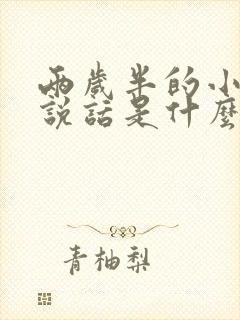 兩歲半的小
說話是什麼
青柚梨